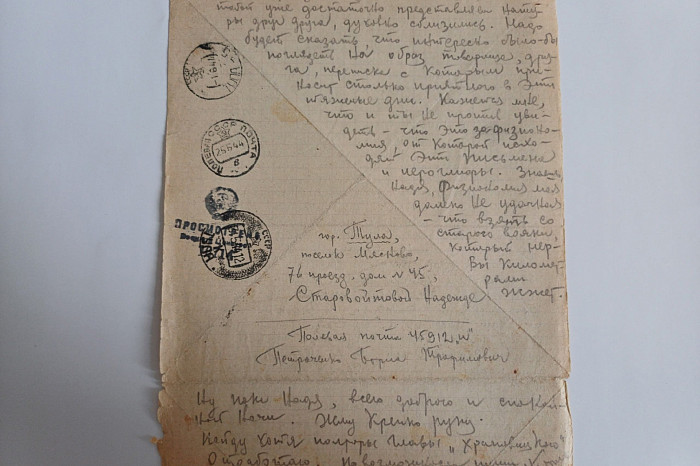 тобой уже достаточно представляем натуры
ры друг друга, духовно сблизились. Надо
будет сказать, что интересно было-бы
поглядеть на образ товарища, дру-
га, переписка с которым при-
носит столько приятного в эти
тяжелые дни. Кажется мне,
что и ты не против уви-
деть - что это за физионо-
мия, от которой исхо-
дят эти письмена
и иероглифы. Знаешь
Надя, физиономия моя
далеко не удачная
- что взять со
старого вояки,
который нер-
вы километ-
рами
жжет.
ПОЛЕВАЯ ПОЧТА
25644
ПРОСМОТРЕНО
гор. Тула,
поселок Мясново,
7й проезд, дом N 45,
Старовойтовой Надежде
Полевая почта 45912 „И"
Петроченко Борис Трофимович
Ну пока Надя, всего доброго и спокой-
ной ночи. Жму крепко руку.
Пойду хотя полторы главы „Храповицкого"